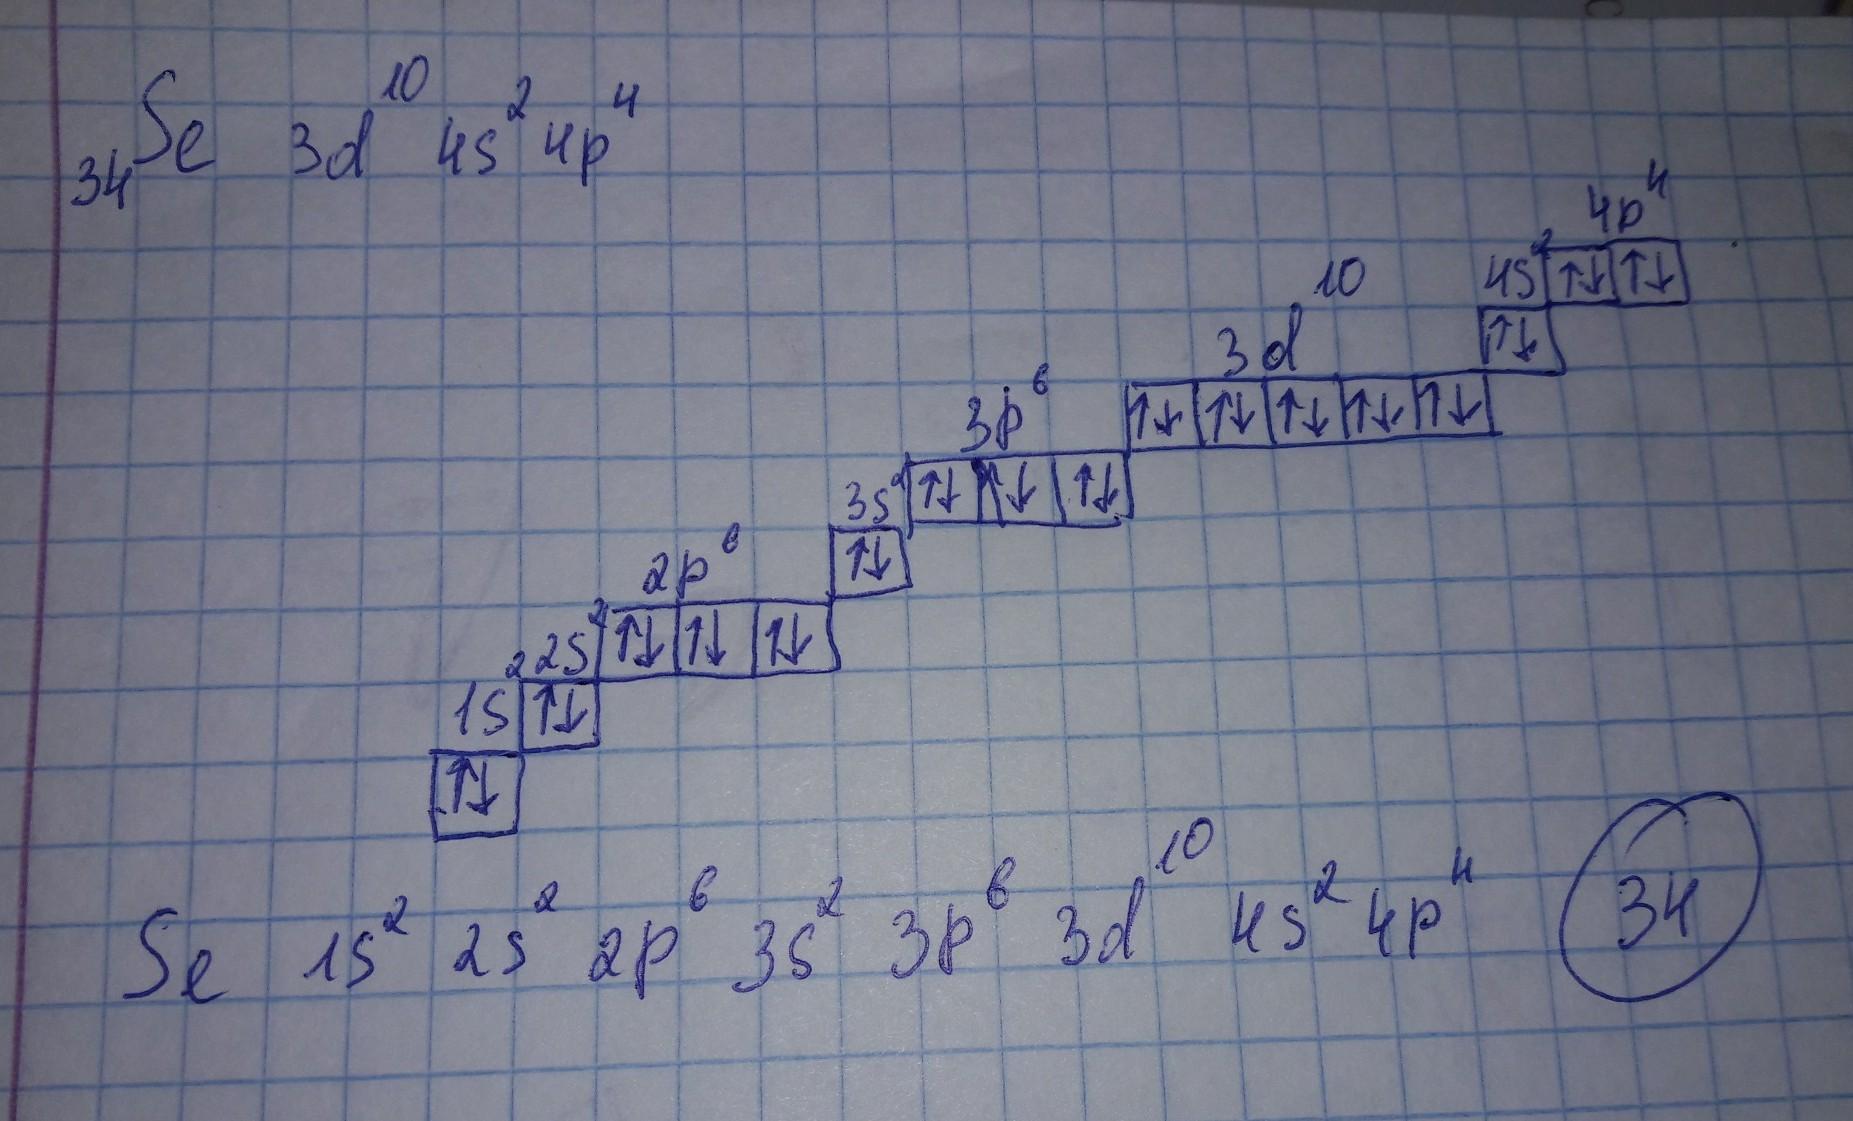 34Se 3d¹⁰ 4s² 4p⁴
4p⁴
4s² ↑↓ ↑↓
3d¹⁰ ↑↓
3p⁶ ↑↓ ↑↓ ↑↓ ↑↓ ↑↓
3s² ↑↓ ↑↓ ↑↓
2p⁶ ↑↓
2s² ↑↓ ↑↓ ↑↓
1s² ↑↓
↑↓
Se 1s² 2s² 2p⁶ 3s² 3p⁶ 3d¹⁰ 4s² 4p⁴ 34